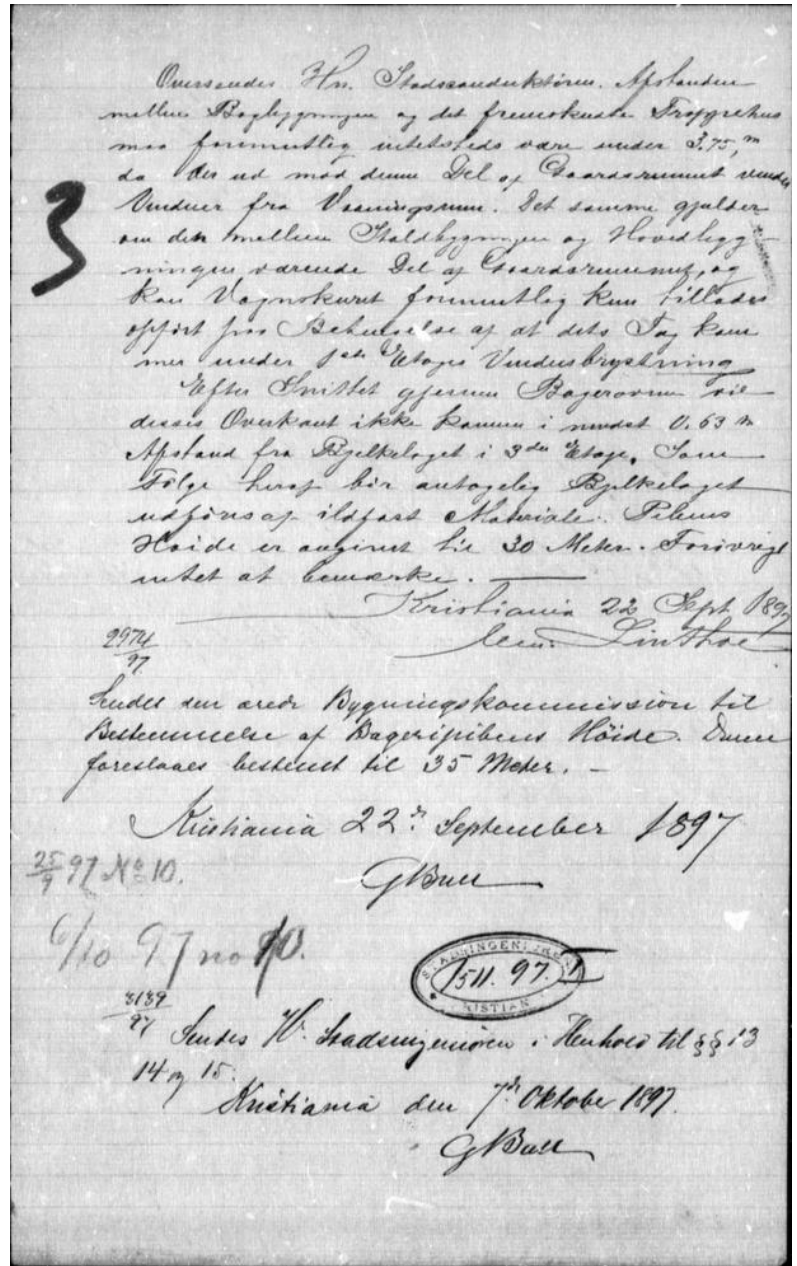 Oversendes Hr. Stadskonduktøren. Afstanden
mellem Bagbygningen og det fremskudte Trappehus
maa formentlig intetsteds være under 3.75, m
da der ud mod denne Del af Gaardsrummet vender
Vinduer fra Vaaningsrum. Det samme gjælder
3
om den mellem Staldbygningen og Hovedbyg-
ningen værende Del af Gaardsrummet, og
kan Vognskuret formentlig kun tillades
opført paa Betingelse af at dets Tag kom
mer under 1ste Etages Vindusbrystning
Efter Snittet gjennem Bagerovnen vil
disses Overkant ikke komme i mindst 0.63 m
Afstand fra Bjelkelaget i 3die Etage. Som
Følge heraf bør antagelig Bjelkelaget
udføres af ildfast Materiale. Pibens
Høide er angivet til 30 Meter. Forøvrigt
intet at bemærke.
Kristiania 22 Sept 1897
2974
97
Sendes den ærede Bygningskommission til
Bestemmelse af Bageripibens Höide. Denne
foreslaaes bestemt til 35 Meter. –
Kristiania 22. September 1897
25/9 97 No 10.
GBull
6/10 97 no 10.
STADSINGENIØREN
15 11. 97.
KRISTIANIA
3139
97
Sendes H. Stadsingeniören i Henhold til §§ 13
14 og 15.
Kristiania den 7de Oktober 1897.
GBull